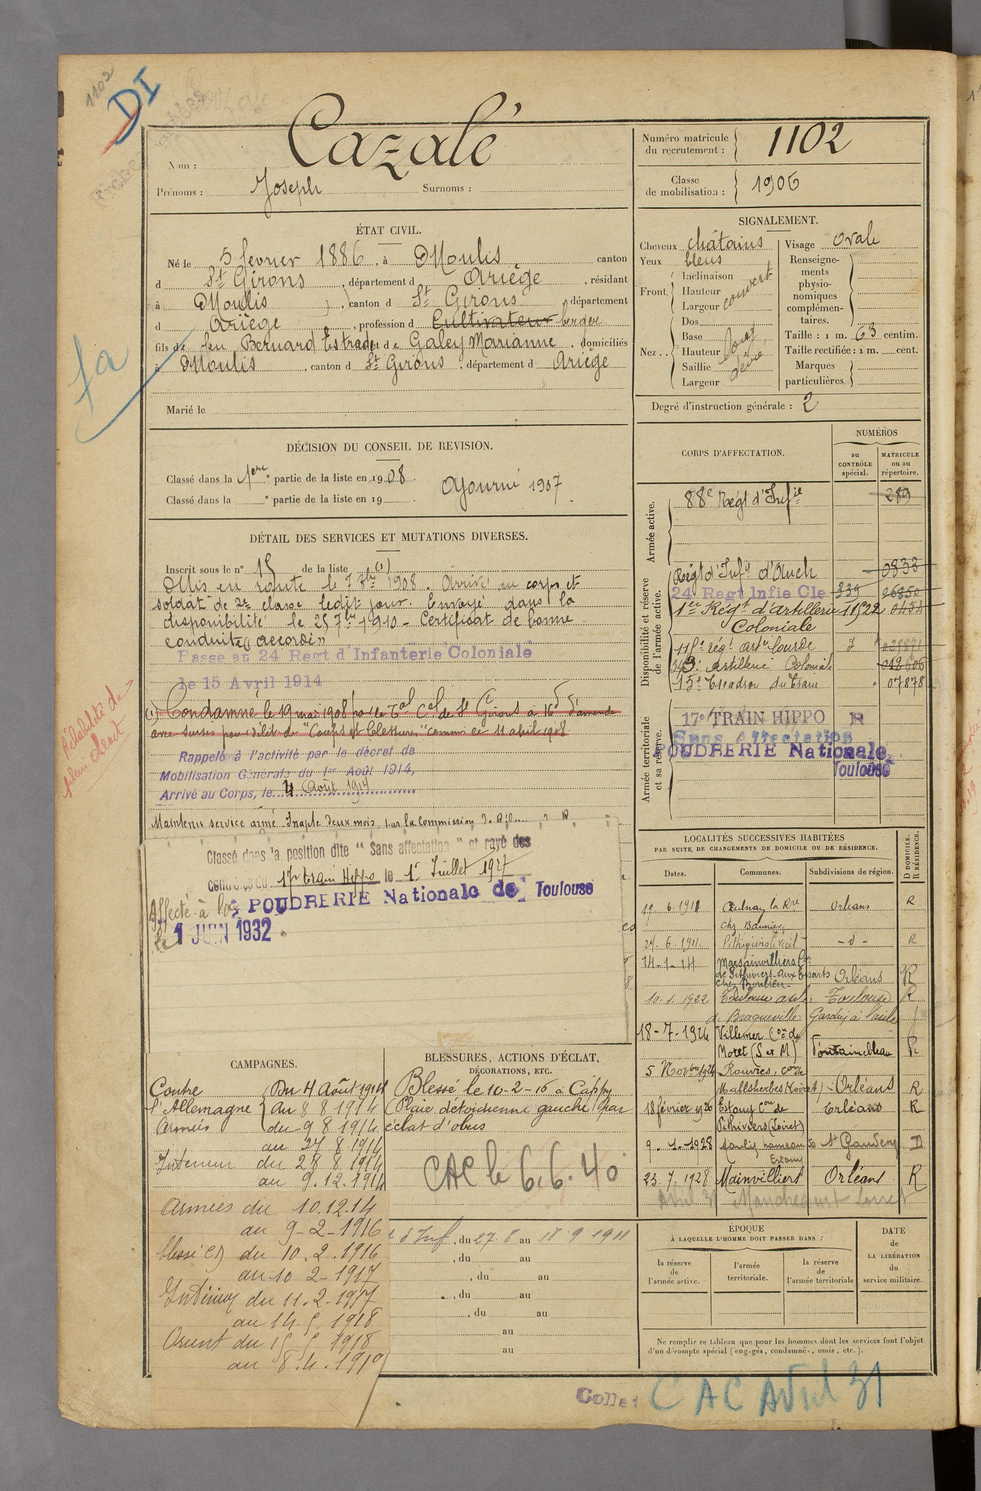 1102
DI
Nom : Cazalé
Prénoms : Joseph Surnoms :
Numéro matricule du recrutement : 1102
Classe de mobilisation : 1906
ÉTAT CIVIL.
Né le 5 février 1886, à Moulis canton
d St Girons, département d Ariège, résidant
à Moulis, canton d St Girons, département
d Ariège, profession d Cultivateur berger
fils de feu Bernard Estrade et de Galey Marianne, domiciliés
à Moulis, canton d St Girons, département d Ariège
Marié le
fa
SIGNALEMENT.
Cheveux châtains
Yeux bleus
Front. Inclinaison
Hauteur couvert
Largeur
Nez.. Dos
Base
Hauteur long
Saillie
Largeur
Visage Ovale
Renseignements physionomiques complémentaires.
Taille : 1 m. 63 centim.
Taille rectifiée : 1 m. cent.
Marques particulières.
Degré d'instruction générale : 2
DÉCISION DU CONSEIL DE REVISION.
Classé dans la 1ère partie de la liste en 1908. Ajourné 1907
Classé dans la e partie de la liste en 19
DÉTAIL DES SERVICES ET MUTATIONS DIVERSES.
Inscrit sous le n° 15 de la liste (1)
Mis en route le 7 8bre 1908. Arrivé au corps et
soldat de 2e classe ledit jour. Envoyé dans la
disponibilité le 25 7bre 1910 - Certificat de bonne
conduite "accordé"
Passé au 24 Regt d'Infanterie Coloniale
le 15 Avril 1914
(1) Condamné le 19 mai 1908 par le Tal Cel de St Girons à 16f d'amende
avec sursis pour délit de "Coups et blessures" commis le 11 avril 1908
Rappelé à l'activité par le décret de
Mobilisation Générale du 1er Août 1914,
Arrivé au Corps, le 4 Août 1914
Maintenu service armé Inapte deux mois par la commission de
Classé dans la position dite "Sans affectation" et rayé des
contrôles du 17e Train Hippo le 1er Juillet 1927
Affecté à la POUDRERIE Nationale de Toulouse
le 1 JUIN 1932
CORPS D'AFFECTATION.
NUMÉROS
au CONTRÔLE spécial.
MATRICULE ou au répertoire.
Armée active.
88e Régt d'Infie 289
Disponibilité et réserve de l'armée active.
Régt d'Infie d'Auch 0833
24 Regt Infie Cle 339
1er Régt d'Artillerie 11522
Coloniale
115e rég. artie lourde
Artillerie Coloniale
15e Escadron du Train 07878
Armée territoriale et sa réserve.
17e TRAIN HIPPO R
Sans Affectation
POUDRERIE Nationale
Toulouse
LOCALITÉS SUCCESSIVES HABITÉES
PAR SUITE DE CHANGEMENTS DE DOMICILE OU DE RÉSIDENCE.
Dates. Communes. Subdivisions de région. D DOMICILE. R RÉSIDENCE.
Aulnay la Rre Orléans R
Pithiviers le Vieil - d - R
14-1-14 Marsainvilliers
Orléans R
10.1.1922 Toulouse Toulouse R
de Braqueville
18-7-1924 Villemer Con de
Moret (S et M) Fontainebleau R
5 Novbre 1924 Rouvres, Con de
Malesherbes (Loiret) Orléans R
18 février 1926 Estouy Con de Orléans R
Pithiviers (Loiret)
9.1.1928 Moulis hameau St Gaudens D
23.7.1928 Mainvilliers Orléans R
Avril 31 Manchecourt Loiret
CAMPAGNES.
Contre l'Allemagne
Du 4 Août 1914
au 8 8 1914
Armées du 9 8 1914
au 27 8 1914
Intérieur du 28 8 1914
au 9.12.1914
Armées du 10.12.14
au 9-2-1916
blessé du 10.2.1916
au 10-2-1917
Intérieur du 11.2.1917
au 14.5.1918
Orient du 15.5.1918
au 8.4.1919
BLESSURES, ACTIONS D'ÉCLAT,
DÉCORATIONS, ETC.
Blessé le 10-2-16 à Cappy
(Plaie gauche par
éclat d'obus
CAC le 6.6.40
d'Inf, du 27.8 au 18 9 1911
, du au
, du au
, du au
, du au
au
au
ÉPOQUE
À LAQUELLE L'HOMME DOIT PASSER DANS :
la réserve de l'armée active.
l'armée territoriale.
la réserve de l'armée territoriale
DATE DE LA LIBÉRATION du service militaire.
Ne remplir ce tableau que pour les hommes dont les services font l'objet
d'un décompte spécial (engagés, condamnés, omis, etc.).
CAC Avril 31